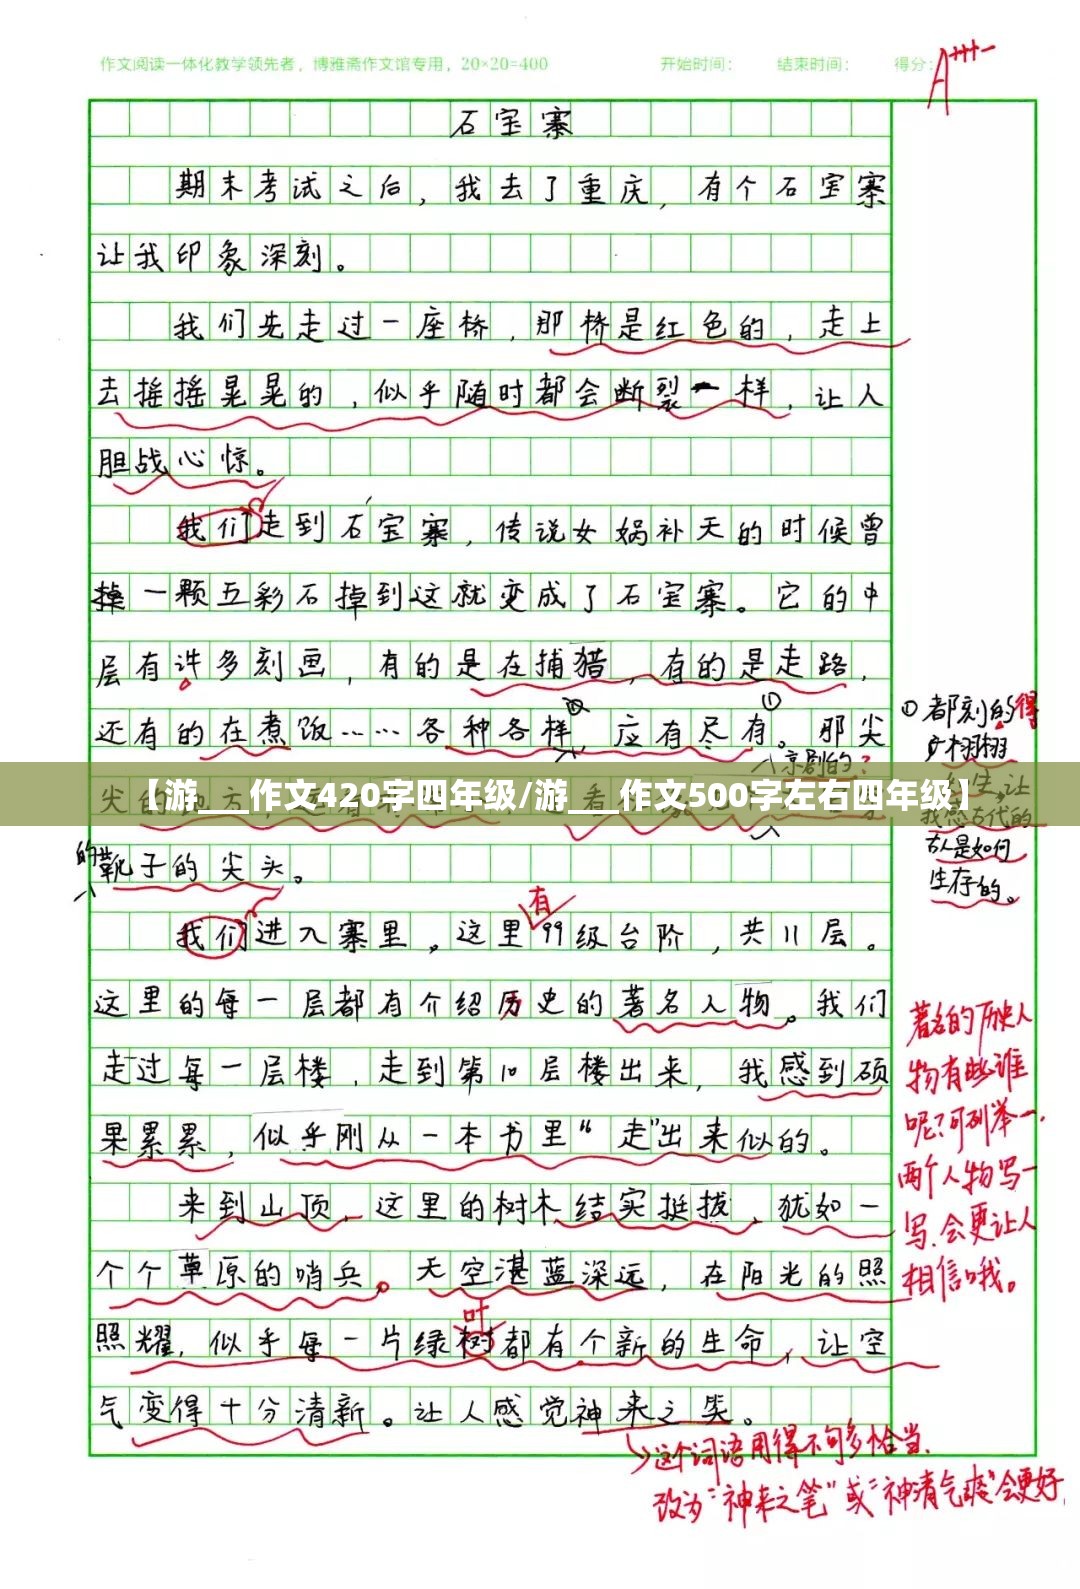 作文阅读一体化教学领先者，博雅斋作文馆专用，20×20=400 开始时间： 结束时间： 得分：
A+++-
石宝寨
期末考试之后，我去了重庆，有个石宝寨
让我印象深刻。
我们先走过一座桥，那桥是红色的，走上
去摇摇晃晃的，似乎随时都会断裂一样，让人
胆战心惊。
我们走到石宝寨，传说女娲补天的时候曾
掉一颗五彩石掉到这就变成了石宝寨。它的中
层有许多刻画，有的是在捕猎，有的是走路，
还有的在煮饭……各种各样，应有尽有。那尖
京剧的？
【游___作文420字四年级/游___作文500字左右四年级】
的靴子的尖头。
我们进入寨里，这里有99级台阶，共11层。
这里的每一层都有介绍历史的著名人物。我们
走过每一层楼，走到第10层楼出来，我感到硕
果累累，似乎刚从一本书里“走”出来似的。
来到山顶，这里的树木结实挺拔，犹如一
个个草原的哨兵。天空湛蓝深远，在阳光的照
叶
照耀，似乎每一片绿树都有个新的生命，让空
气变得十分清新。让人感觉神来之笔。
①都刻的得
栩栩
古人是如何
生存的。
著名的历史人
物有些谁
呢？可列举一、
两个人物写一
写，会更让人
相信哦。
这个词语用得不句多恰当，
改为“神来之笔”或“神清气爽”会更好